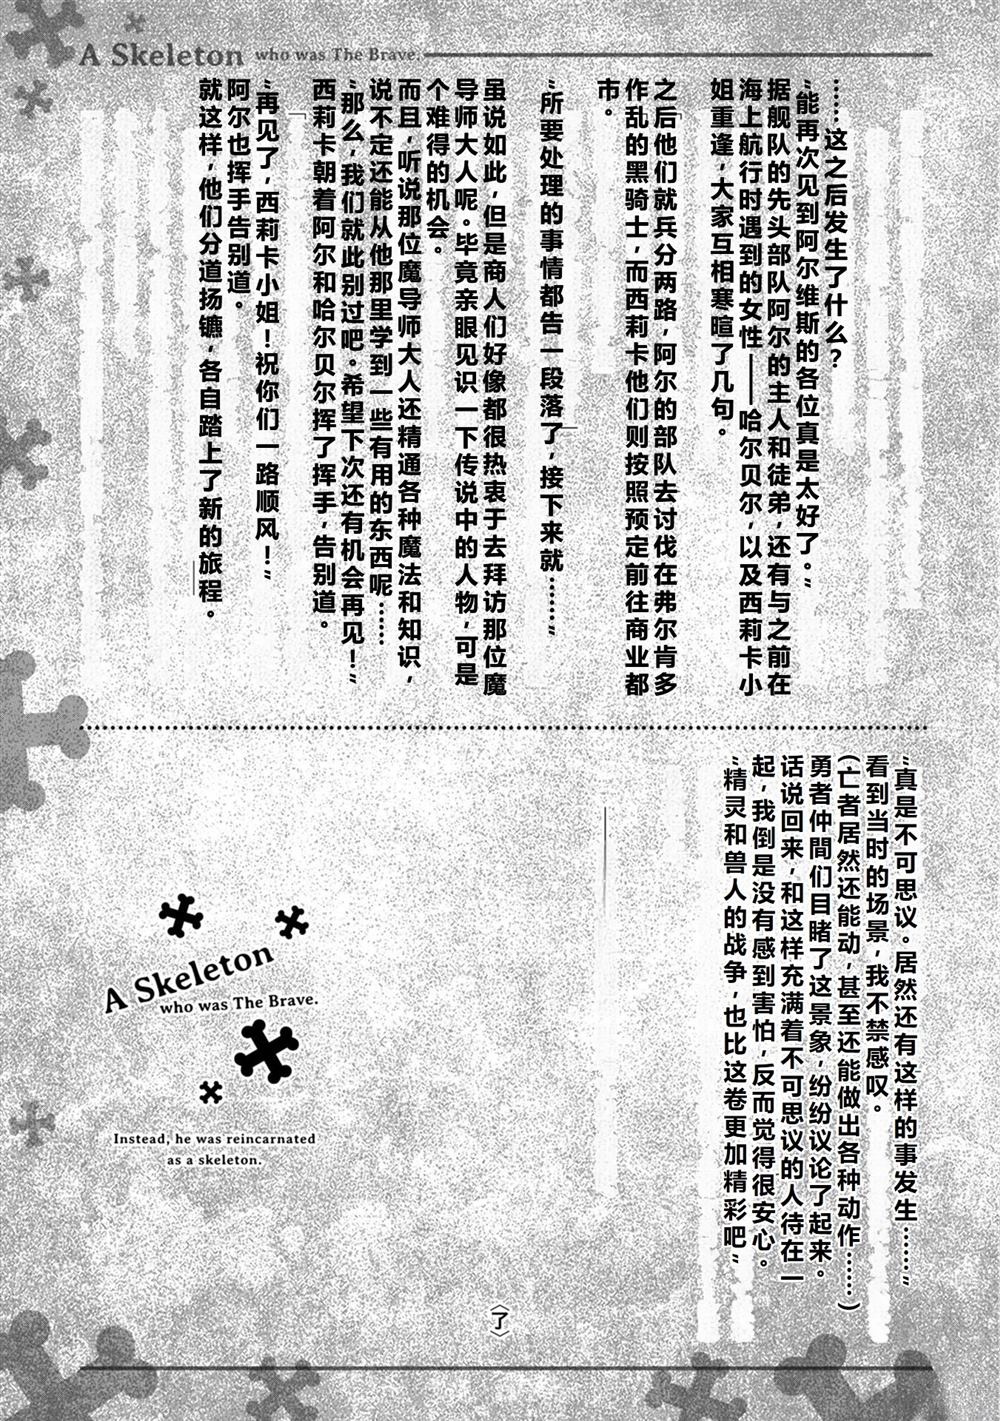 A Skeleton who was The Brave.
……这之后发生了什么？
“能再次见到阿尔维斯的各位真是太好了。”
据舰队的先头部队阿尔的主人和徒弟，还有与之前在
海上航行时遇到的女性——哈尔贝尔，以及西莉卡小
姐重逢，大家互相寒暄了几句。
之后他们就兵分两路，阿尔的部队去讨伐在弗尔肯多
作乱的黑骑士，而西莉卡他们则按照预定前往商业都
市。
“所要处理的事情都告一段落了，接下来就……”
虽说如此，但是商人们好像都很热衷于去拜访那位魔
导师大人呢。毕竟亲眼见识一下传说中的人物，可是
个难得的机会。
而且，听说那位魔导师大人还精通各种魔法和知识，
说不定还能从他那里学到一些有用的东西呢……
“那么，我们就此别过吧。希望下次还有机会再见！”
西莉卡朝着阿尔和哈尔贝尔挥了挥手，告别道。
“再见了，西莉卡小姐！祝你们一路顺风！”
阿尔也挥手告别道。
就这样，他们分道扬镳，各自踏上了新的旅程。
“真是不可思议。居然还有这样的事发生……”
看到当时的场景，我不禁感叹。
（亡者居然还能动，甚至还能做出各种动作……）
勇者仲間们目睹了这景象，纷纷议论了起来。
话说回来，和这样充满着不可思议的人待在一
起，我倒是没有感到害怕，反而觉得很安心。
“精灵和兽人的战争，也比这卷更加精彩吧”
〈了〉
A Skeleton
who was The Brave.
Instead, he was reincarnated
as a skeleton.